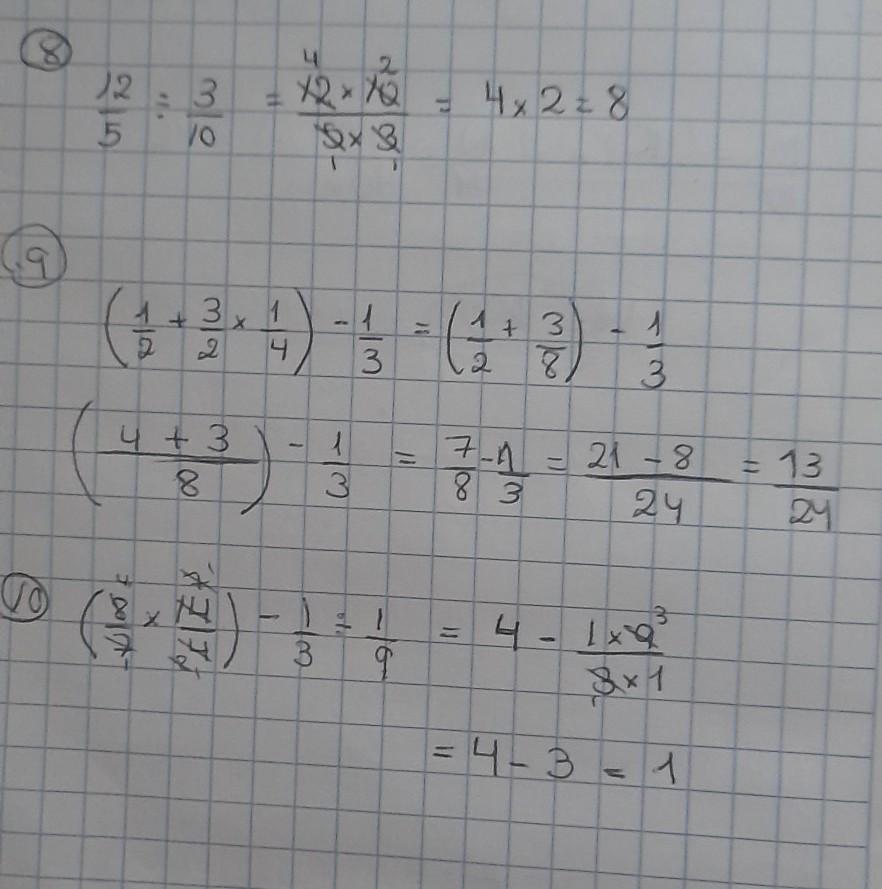 8
12/5 ÷ 3/10 = (12 × 10)/(5 × 3) = 4 × 2 = 8
9
(1/2 + 3/2 × 1/4) - 1/3 = (1/2 + 3/8) - 1/3
((4 + 3)/8) - 1/3 = 7/8 - 1/3 = (21 - 8)/24 = 13/24
10
- 1/3 ÷ 1/9 = 4 - (1 × 9)/(3 × 1)
= 4 - 3 = 1